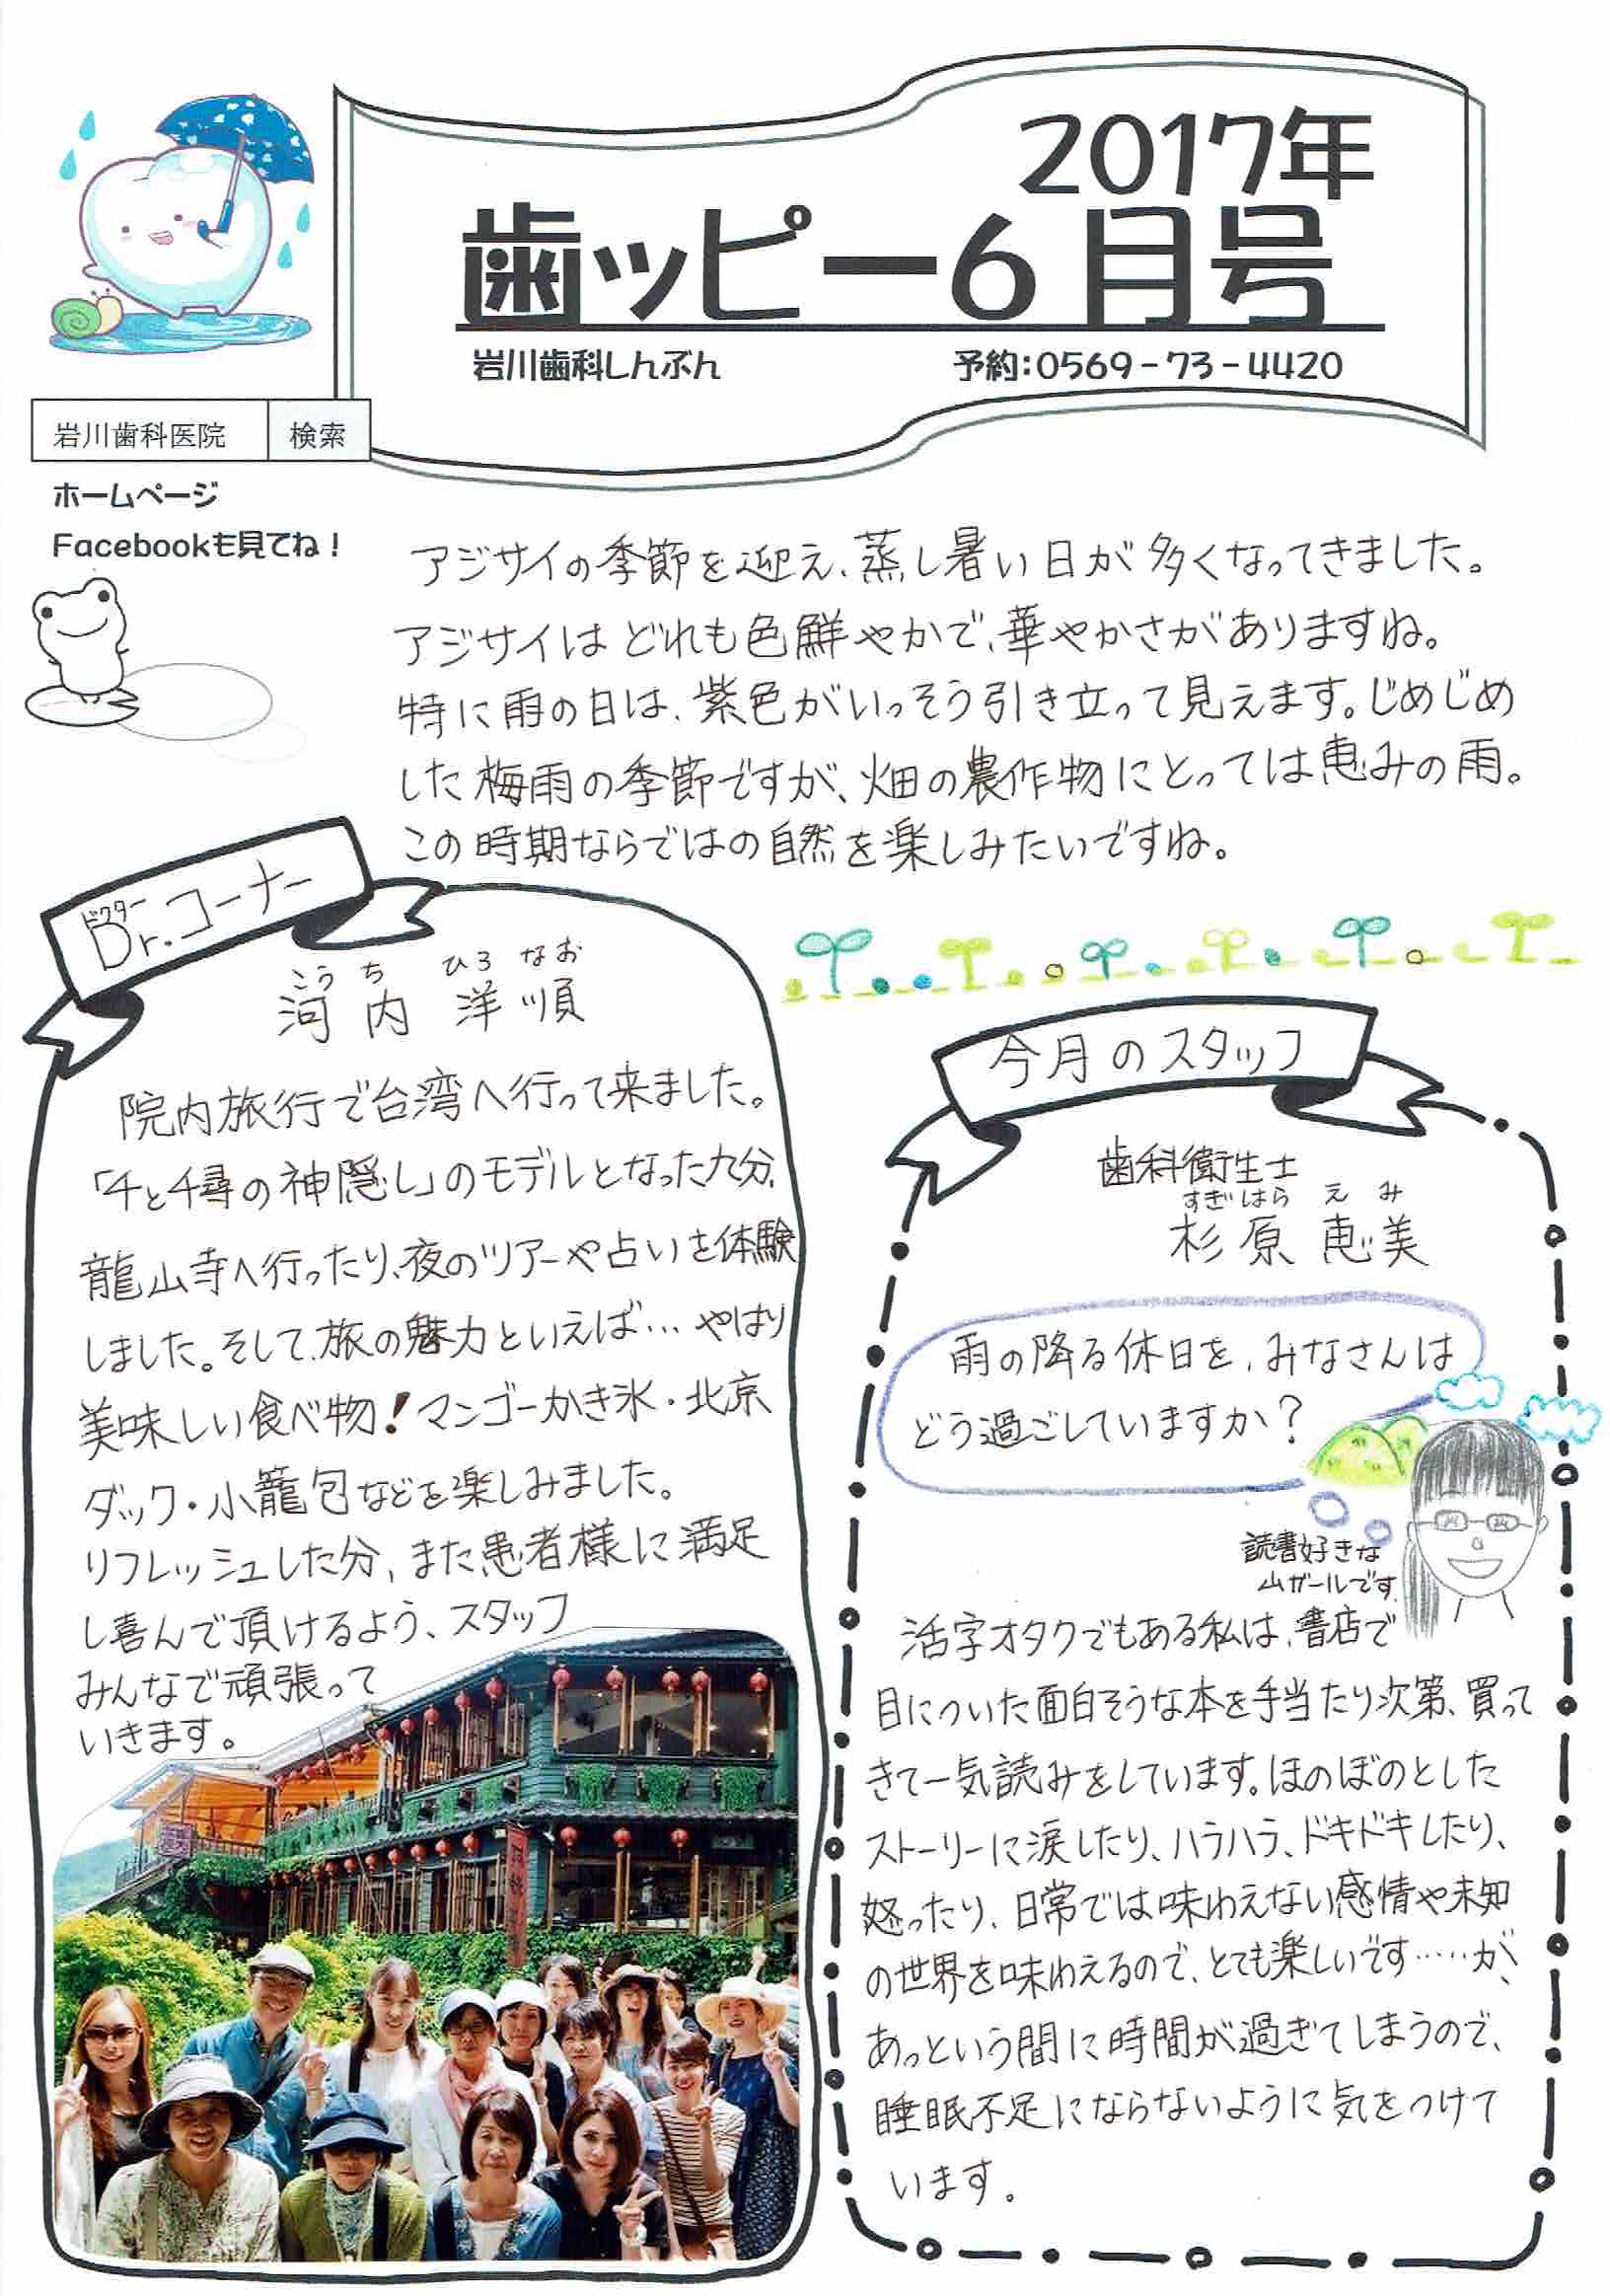 2017年
歯ッピー6月号
岩川歯科しんぶん
予約:0569-73-4420
岩川歯科医院 検索
ホームページ
Facebookも見てね!
アジサイの季節を迎え、蒸し暑い日が多くなってきました。
アジサイはどれも色鮮やかで、華やかさがありますね。
特に雨の日は、紫色がいっそう引き立って見えます。じめじめ
した梅雨の季節ですが、畑の農作物にとっては恵みの雨。
この時期ならではの自然を楽しみたいですね。
ドクター
Dr.コーナー
こうち ひろなお
河内 洋順
院内旅行で台湾へ行って来ました。
「千と千尋の神隠し」のモデルとなった九分、
龍山寺へ行ったり、夜のツアーや占いを体験
しました。そして、旅の魅力といえば…やはり
美味しい食べ物!マンゴーかき氷・北京
ダック・小籠包などを楽しみました。
リフレッシュした分、また患者様に満足
し喜んで頂けるよう、スタッフ
みんなで頑張って
いきます。
今月のスタッフ
歯科衛生士
すぎはら えみ
杉原 恵美
雨の降る休日を、みなさんは
どう過ごしていますか?
読書好きな
山ガールです
活字オタクでもある私は、書店で
目についた面白そうな本を手当たり次第、買って
きて一気読みをしています。ほのぼのとした
ストーリーに涙したり、ハラハラ、ドキドキしたり、
怒ったり、日常では味わえない感情や未知
の世界を味わえるので、とても楽しいです……が、
あっという間に時間が過ぎてしまうので、
睡眠不足にならないように気をつけて
います。